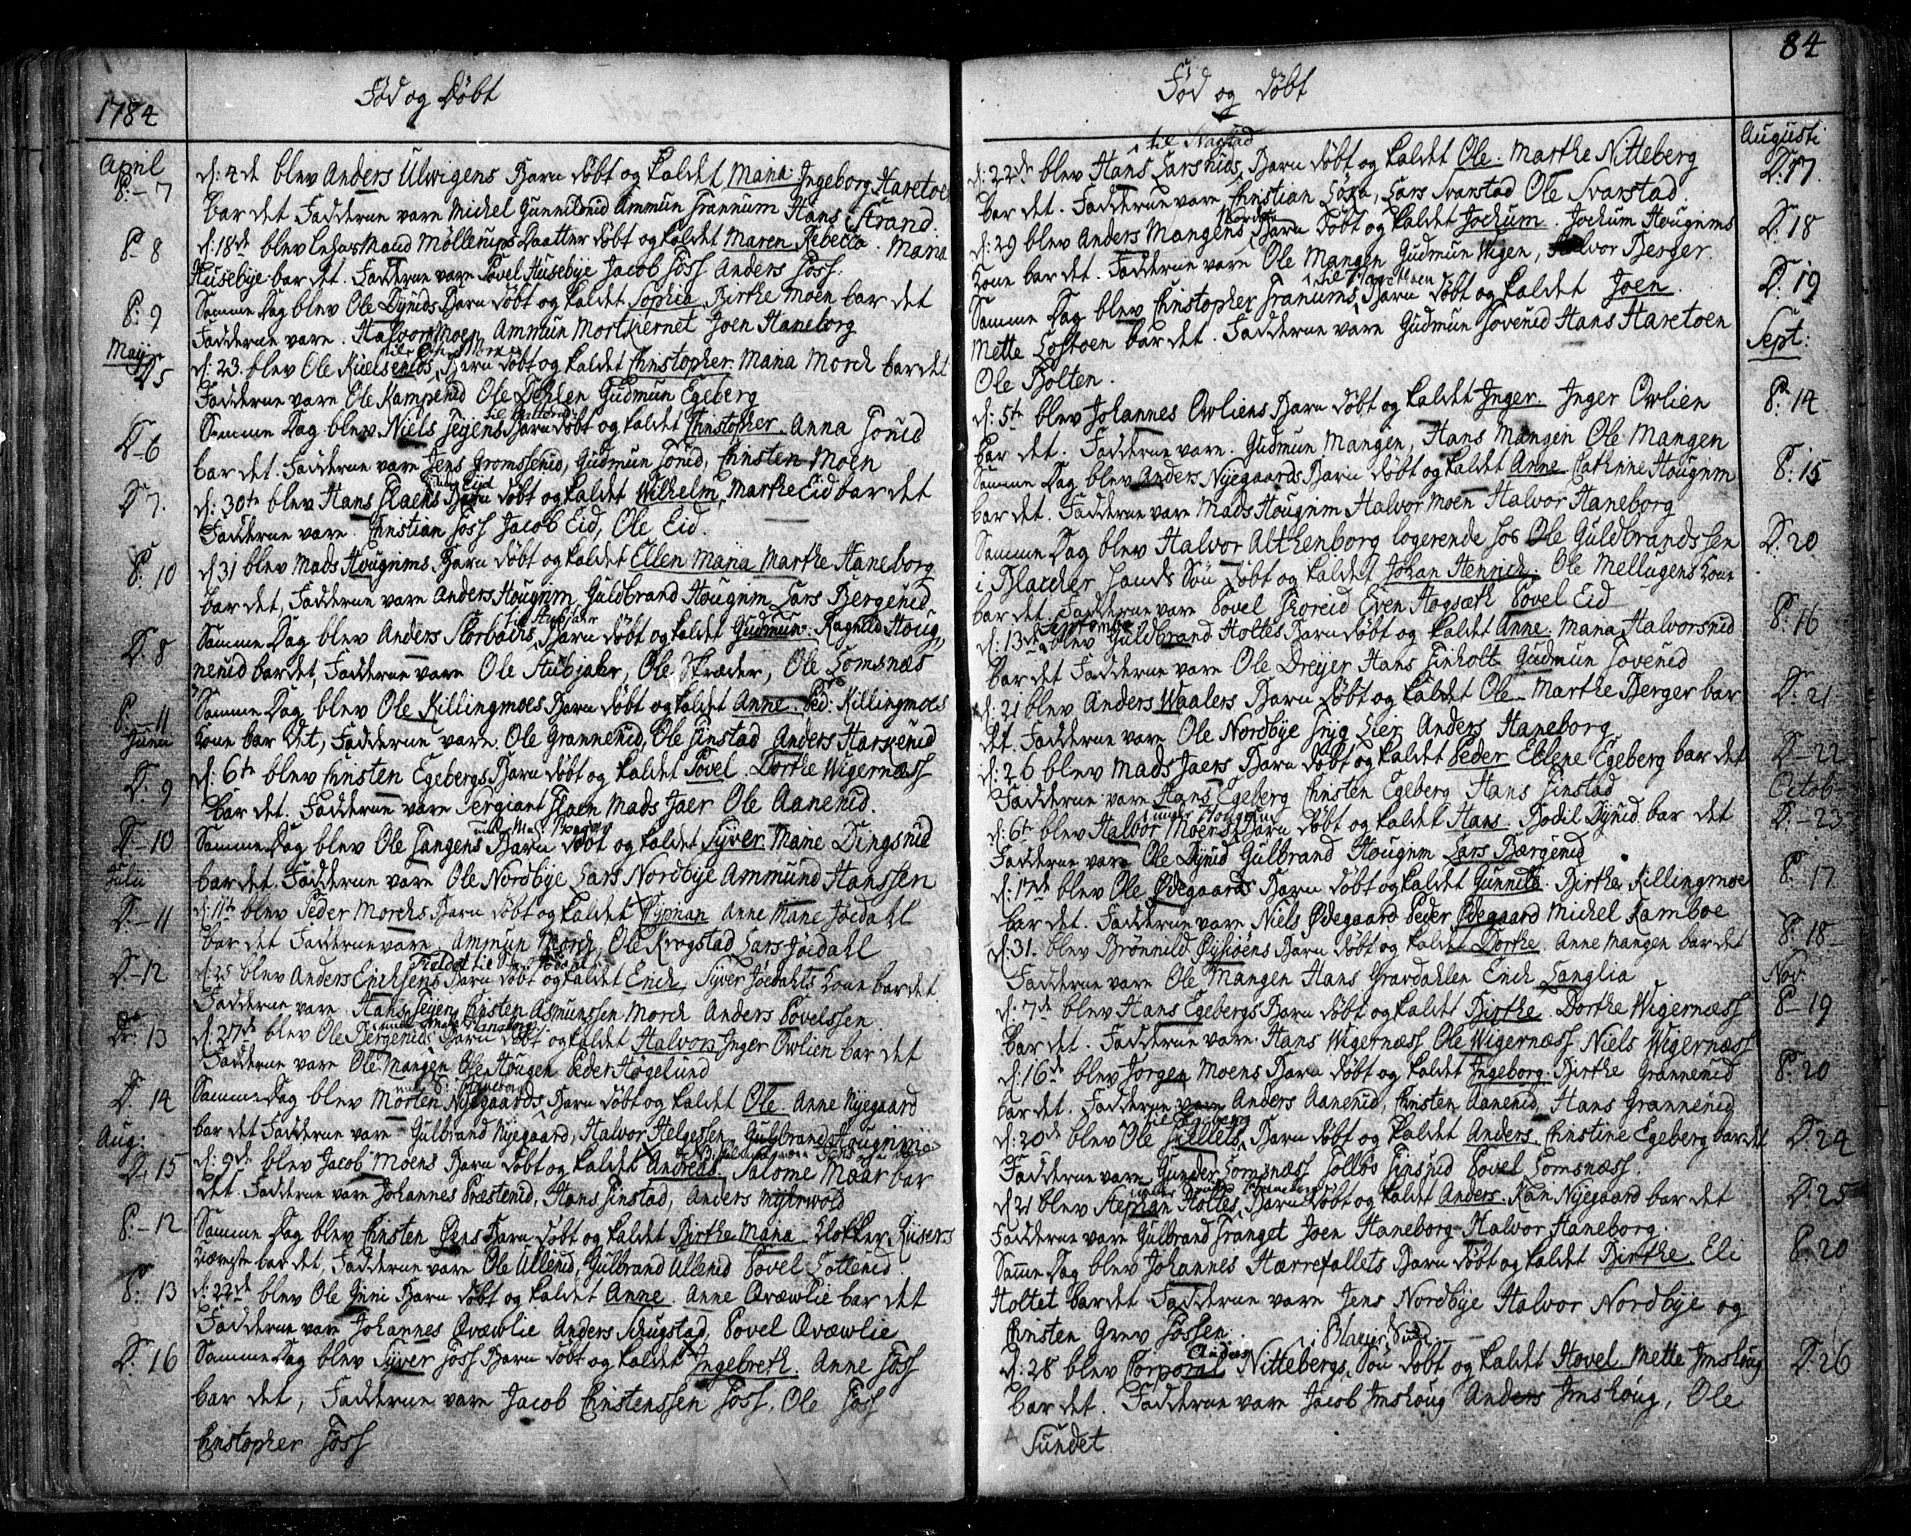 1784
Föd og Döbt
April
P: - 7
d: 4de blev Anders Ulwigens Barn döbt og kaldet Maria. Ingeborg Haretoen
bar det. Fadderne vare Michel Gunnildrud Ammun Grannum Hans Strand.
P- 8
d: 18de blev Mand Möllerups Daatter döbt og kaldet Maren Rebecca. Maria
Husebye bar det. Fadderne vare Povel Husebye Jacob Foss Anders Foss.
P: 9
Samme Dag blev Ole Dynids Barn döbt og kaldet Sophia Birthe Moen bar det
Fadderne vare. Halvor Moen Ammun Mortkiernet Joen Haneborg
Maij
D 5
d: 23. blev Ole Nielsens Barn döbt og kaldet Christopher. Maria Morck bar det
Fadderne vare Ole Kampenid Ole Dehlen Gudmun Egeberg
D- 6
Samme Dag blev Niels Seyens Barn döbt og kaldet Christopher Anna Tonid
bar det. Fadderne vare Jens Gromssenid, Gudmun Tonid, Christen Moen
D 7.
d: 30te blev Hans Claens Barn döbt og kaldet Wilhelm, Marthe Eid bar det
Fadderne vare Christian Foss Jacob Eid, Ole Eid.
P: 10
d 31 blev Mads Hougnims Barn döbt og kaldet Ellen Maria Marthe Haneborg
bar det, Fadderne vare Anders Hougnim Guldbrand Hougnim Lars Bergenid
til Aubjahr
D: 8
Samme Dag blev Anders Storbachs Barn döbt og kaldet Gudmun. Ragnild Houg,
nenid bar det, Fadderne vare Ole Aubjahr, Ole Skræder, Ole Lomsnæs
P: - 11
Samme Dag blev Ole Killingmoes Barn döbt og kaldet Anne. Ped: Killingmoes
Junii
Kone bar det, Fadderne vare Ole Grannenid, Ole Tinstad Anders Harkenid
D: 9
d: 6te blev Christen Egebergs Barn döbt og kaldet Povel. Dorthe Wigernæss
bar det. Fadderne vare Sergiant Mads Jaer Ole Aanenid.
D- 10
Samme Dag blev Ole Langens Barn döbt og kaldet Syver Mane Dingsnid
Julii
bar det. Fadderne vare Ole Nordbye Lars Nordbye Ammund Hanssen
D- 11
d: 11te blev Peder Morchs Barn döbt og kaldet Anne Mane Jöedahl
bar det Fadderne vare Ammun Morch, Ole Krogstad Lars Jöedahl
D- 12
d: 25 blev Anders Erichsens Barn döbt og kaldet Erich Syver Jöedahls Kone bar det
Fadderne vare Hans Seyen Christen Asmunssen Morch Anders Povelssen
D: 13
d: 27de blev Ole Bergenids Barn döbt og kaldet Halvor Inger Owlien bar det
Fadderne vare Ole Mangen Ole Hougen Peder Högelund
D: 14
Samme Dag blev Morten Nyegaards Barn döbt og kaldet Ole. Anne Nyegaard
Aug:
bar det Fadderne vare Gulbrand Nyegaard, Halvor Helgessen Gulbrand Hougnim
D: 15
d: 9de blev Jacob Moens Barn döbt og kaldet Andreas. Salome Maar bar
det. Fadderne vare Johannes Præstenid, Hans Tinstad, Anders Myhrwold
P: - 12
Samme Dag blev Christen Öens Barn döbt og kaldet Birthe Maria Klokker Riisers
Kiæreste bar det, Fadderne vare Ole Ullenid, Gulbrand Ullenid Povel Tottenid
P: 13
d: 22de blev Ole Juni Barn döbt og kaldet Anne. Anne Qvæwlie bar det
Fadderne vare Johannes Qvæwlie Anders Skugstad, Povel Qvæwlie
D: 16
Samme Dag blev Syver Foss Barn döbt og kaldet Ingebreth. Anne Foss
bar det, Fadderne vare Jacob Christenssen Foss. Ole Foss
Christopher Foss
84
Föd og döbt
Augusti
til Svastad
D: 17
d: 22de blev Hans Larsnids Barn döbt og kaldet Ole. Marthe Nitteberg
bar det. Fadderne vare Christian Löka, Lars Svarstad Ole Svarstad
D: 18
d: 29 blev Anders Mangens Barn döbt og kaldet Jochum. Jochum Hougnims
Kone bar det. Fadderne vare Ole Mangen Gudmun Wigen, Halvor Berger
D: 19
Samme Dag blev Christopher Granums Barn döbt og kaldet Joen.
Mette Lostoen bar det. Fadderne vare Gudmun Tovenid Hans Haretoen
Sept:
Ole Bolten.
P: 14
d: 5te blev Johannes Owliens Barn döbt og kaldet Inger. Inger Owlien
bar det. Fadderne vare. Gudmun Mangen, Hans Mangen Ole Mangen
P: 15
Samme Dag blev Anders Nyegaards Barn döbt og kaldet Anne Cathrine Hougnim
bar det. Fadderne vare Mads Hougnim Halvor Moen Halvor Haneborg
D: 20
Samme Dag blev Halvor Althenborg logerende hos Ole Guldbrandssen
i Blaccher Lands Sön döbt og kaldet Johan Henrich. Ole Mellugens Kone
bar det Fadderne vare Povel Thoreid Even Hogsæth Povel Eid
P: 16
d: 13de Septembr blev Guldbrand Holtes Barn döbt og kaldet Anne. Maria Halvorsnid
bar det Fadderne vare Ole Dreyer Hans Tinholt Gudmun Tovenid
D: 21
d: 21 blev Anders Waalers Barn döbt og kaldet Ole Marthe Berger bar
det. Fadderne vare Ole Nordbye Tryg Lier Anders Haneborg
D- 22
d: 26 blev Mads Jaers Barn döbt og kaldet Peder Ellene Egeberg bar det
Octob-
Fadderne vare Hans Egeberg Christen Egeberg Hans Tinstad
under Hougnim
D: - 23
d: 6te blev Halvor Moers Barn döbt og kaldet Hans. Bodil Dynid bar det
Fadderne vare Ole Dynid Gulbrand Hougnim Lars Bærgenid
P: 17
d: 17de blev Ole Ödegaards Barn döbt og kaldet Gunnild. Birthe Killingmoe
bar det. Fadderne vare Niels Ödegaard Peder Ödegaard Michel Kamboe
P: 18-
d: 31. blev Brönnild Barn döbt og kaldet Dorthe. Anne Mangen bar det
Nov:
Fadderne vare Ole Mangen Hans Gravdahlen Erich Langlia
P- 19
d: 7de blev Hans Egebergs Barn döbt og kaldet Birthe. Dorthe Wigernæss
bar det. Fadderne vare. Hans Wigernæss Ole Wigernæss Niels Wigernæss
P: 20
d: 16de blev Jörgen Moens Barn döbt og kaldet Ingeborg. Birthe Grannenid
bar det. Fadderne vare Anders Aanenid, Christen Aanenid, Hans Grannenid
til Egeberg
D: 24
d: 20de blev Ole Barn döbt og kaldet Anders. Christine Egeberg bar det
Fadderne vare Gunder Lomsnæss Tollös Tinsnid Povel Lomsnæss.
D: 25
d 21 blev Holtes Barn döbt og kaldet Anders. Kari Nyegaard bar det
Fadderne vare Gulbrand Tranget Joen Haneborg Halvor Haneborg.
P: 20
Samme Dag blev Johannes Hærrefallets Barn döbt og kaldet Birthe. Eli
Holtet bar det Fadderne vare Jens Nordbye Halvor Nordbye og
Christen Grev Fossen.
D: 26
d: 28 blev Corporal Anders Nittebergs Sön döbt og kaldet Hovel Mette Imshoug
bar det. Fadderne vare Jacob Imshoug Anders Imshoug, Ole
Sundet